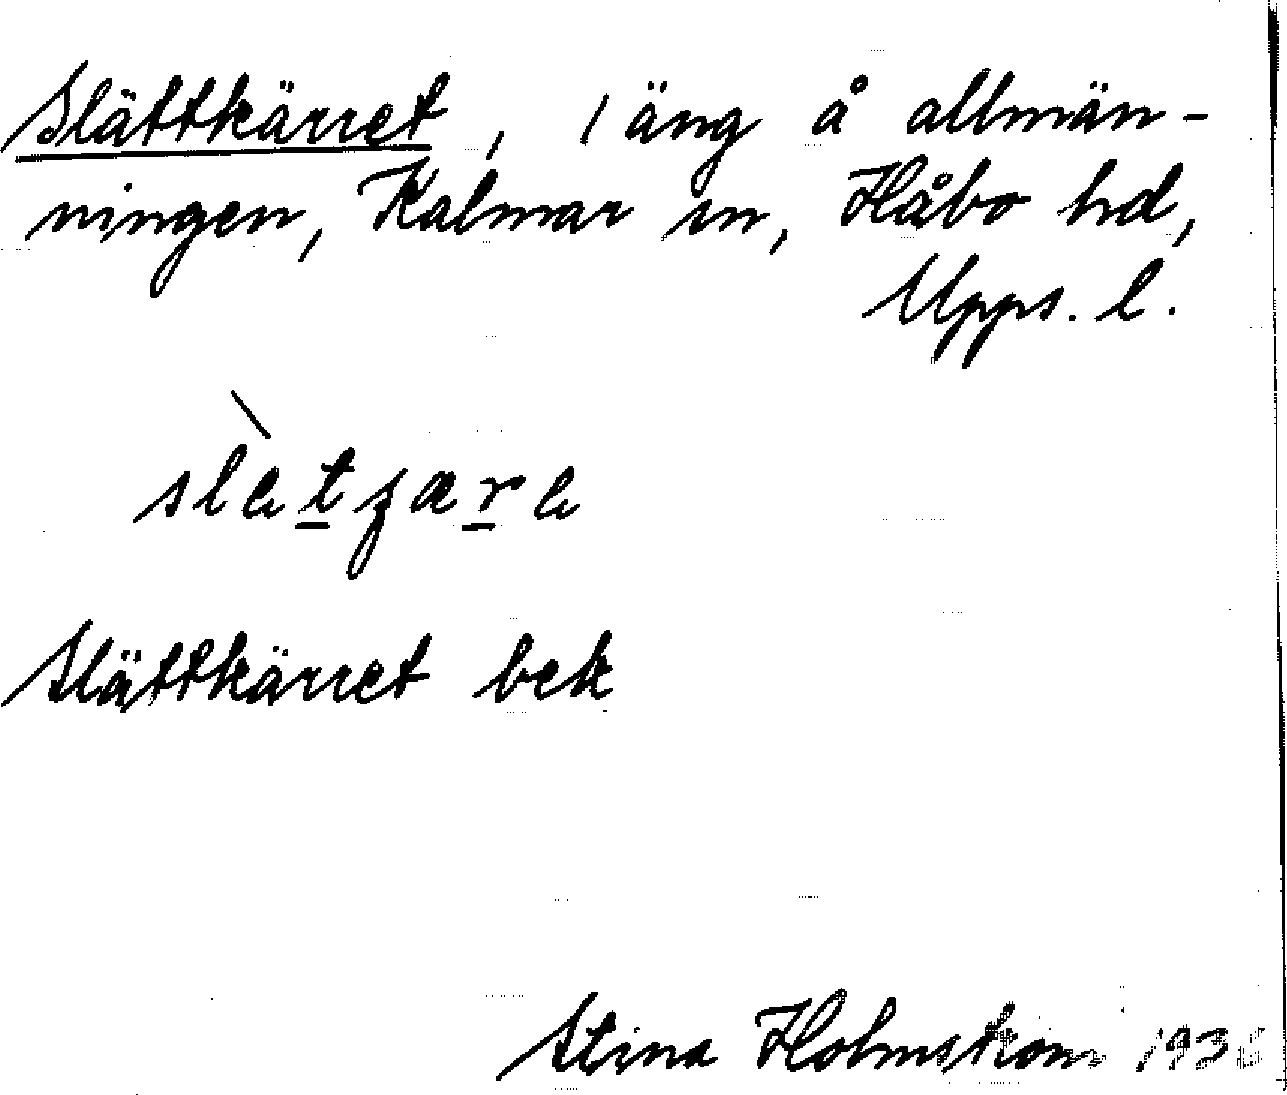 Slättkärret, 1 äng å allmän-
ningen, Kalmar sn, Håbo hd,
Upps. l.
Slättkärret bek
Stina Holmstrom